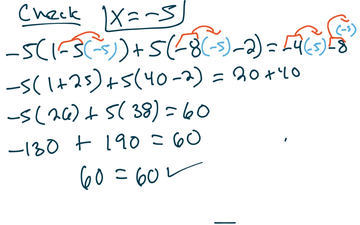 Check x = -5
-5(1-5(-5)) + 5(-8(-5)-2) = -4(-5)-8(-5)
-5(1+25) + 5(40-2) = 20+40
-5(26) + 5(38) = 60
-130 + 190 = 60
60 = 60 ✓